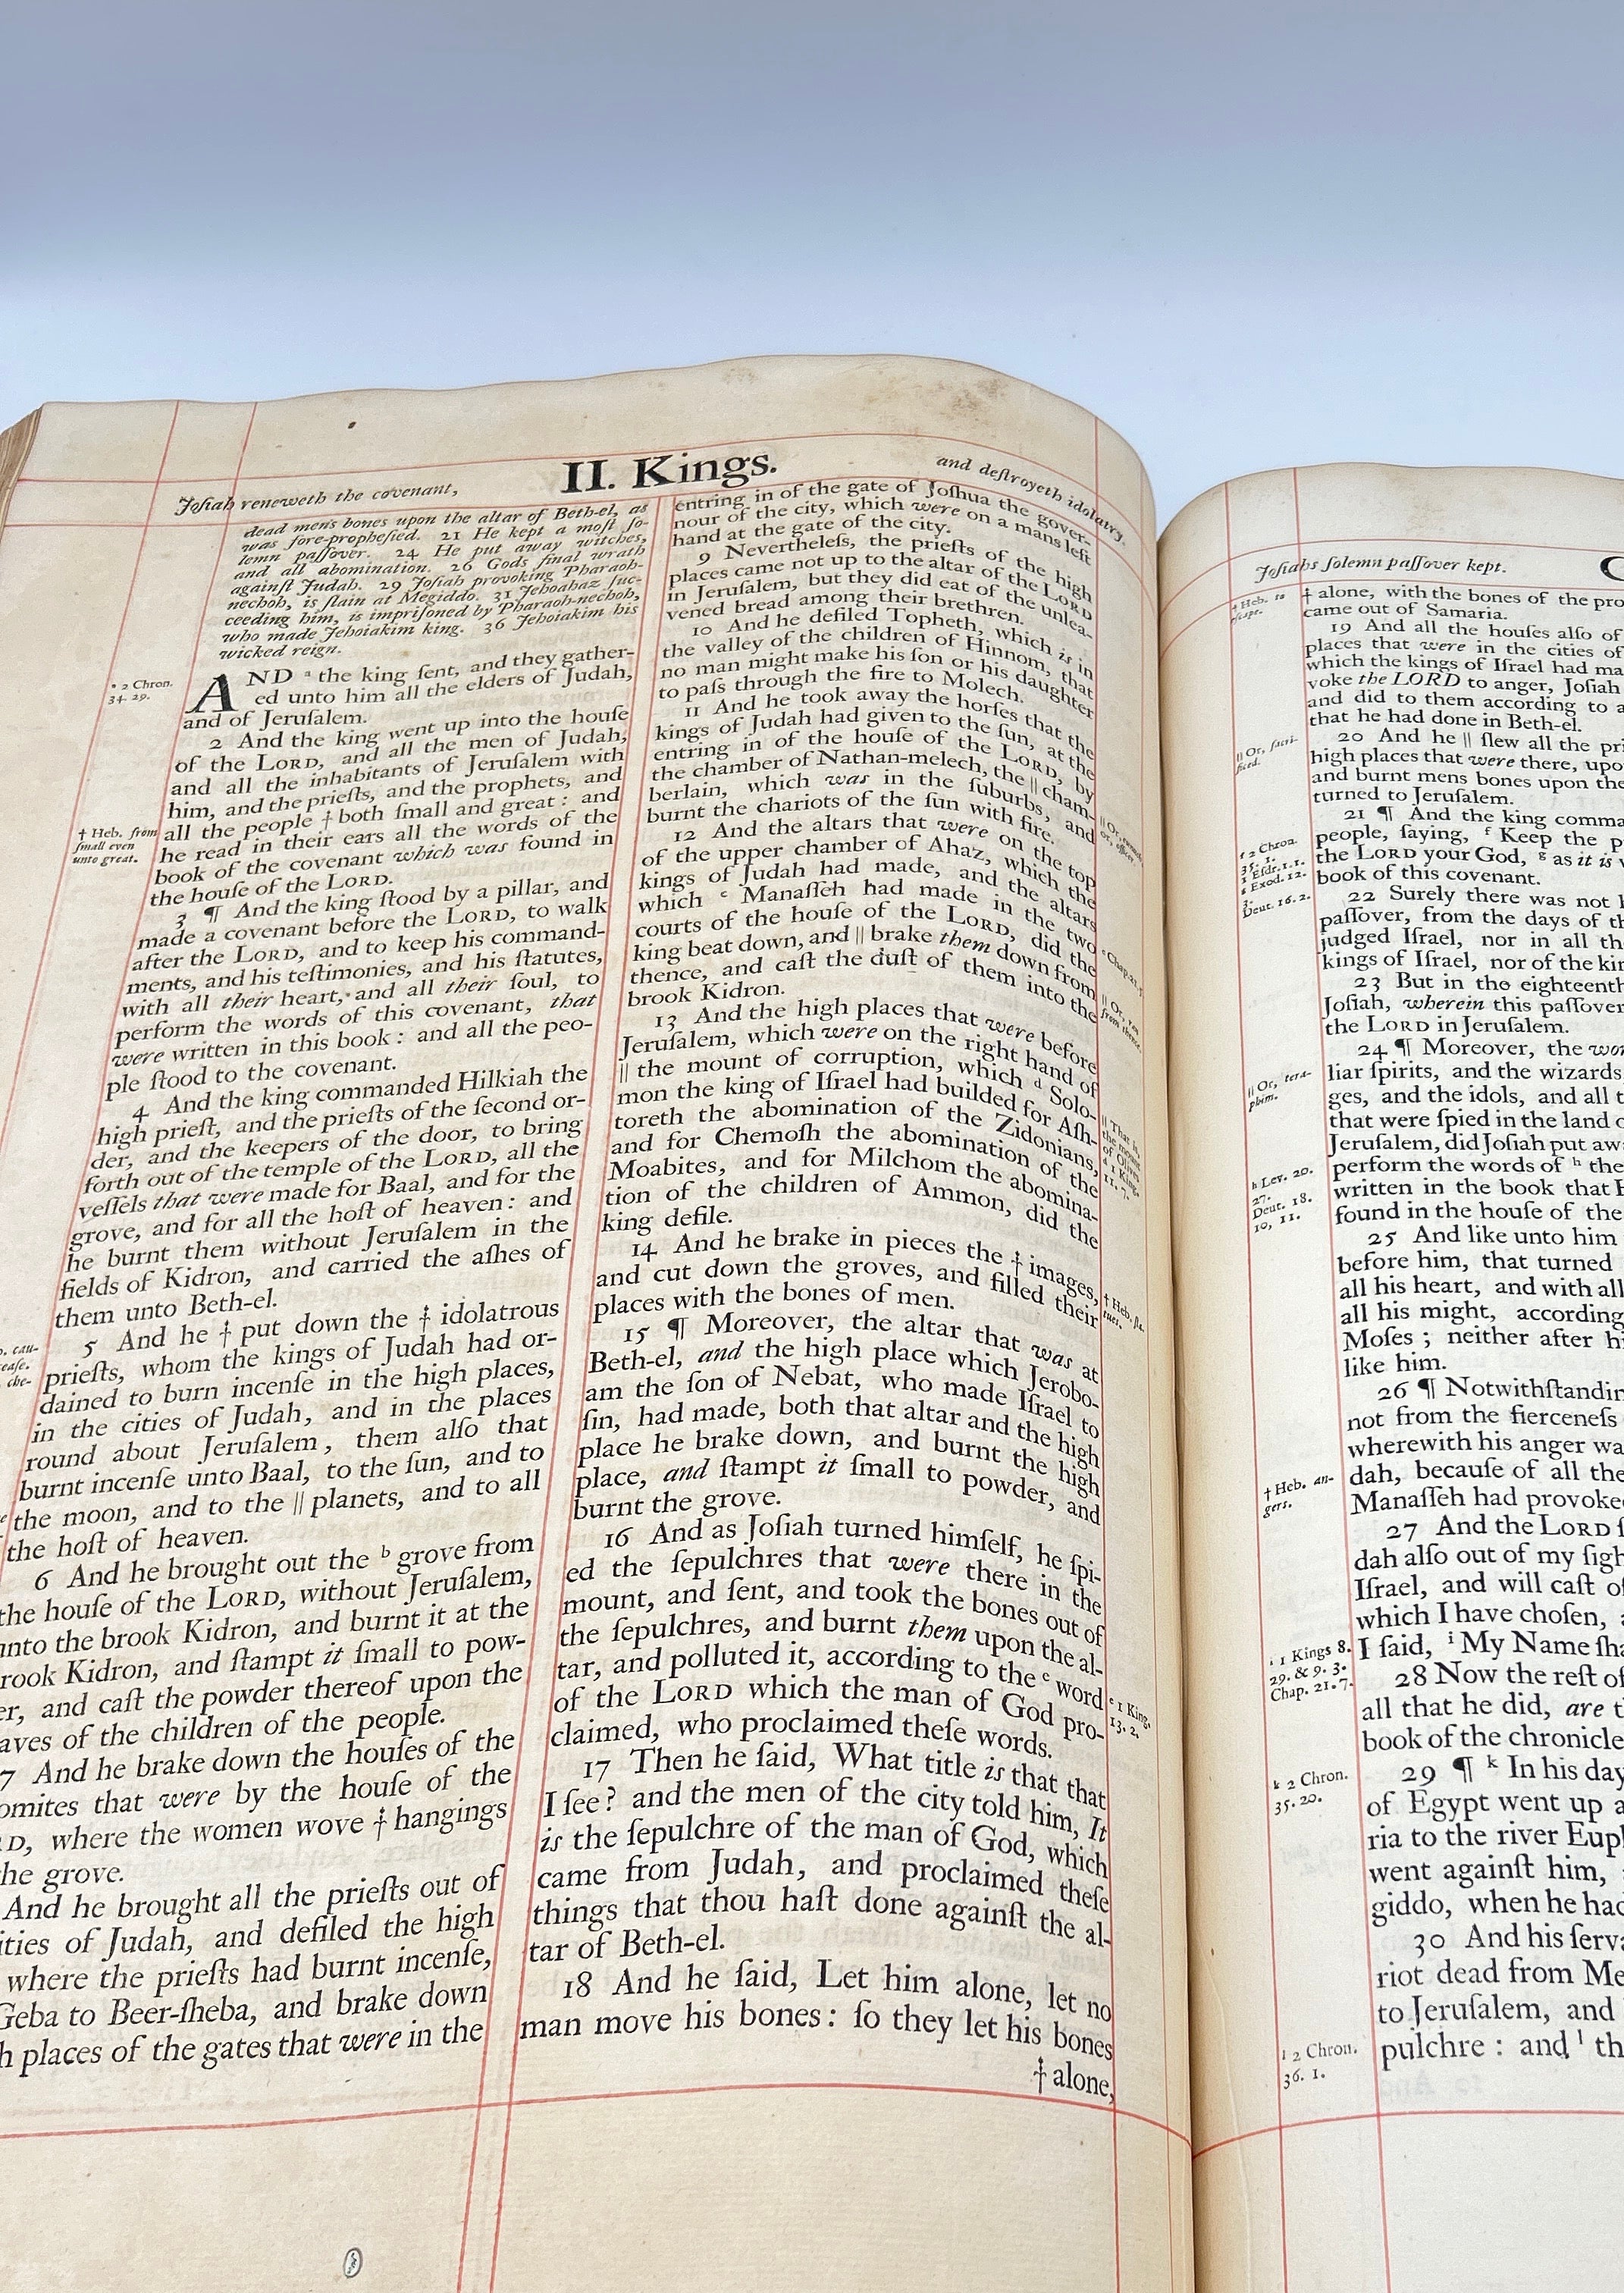 Joſiah reneweth the covenant,
II. Kings.
and deſtroyeth idolatry.
dead men's bones upon the altar of Beth-el, as
was fore-propheſied. 21 He kept a moſt ſo-
lemn paſſover. 24 He put away witches,
and all abomination. 26 Gods final wrath
againſt Judah. 29 Joſiah provoking Pharaoh-
nechoh, is ſlain at Megiddo. 31 Jehoahaz ſuc-
ceeding him, is impriſoned by Pharaoh-nechoh,
who made Jehoiakim king. 36 Jehoiakim his
wicked reign.
AND ᵃ the king ſent, and they gather-
ed unto him all the elders of Judah,
and of Jeruſalem.
2 And the king went up into the houſe
of the LORD, and all the men of Judah,
and all the inhabitants of Jeruſalem with
him, and the prieſts, and the prophets, and
all the people † both ſmall and great: and
he read in their ears all the words of the
book of the covenant which was found in
the houſe of the LORD.
3 ¶ And the king ſtood by a pillar, and
made a covenant before the LORD, to walk
after the LORD, and to keep his command-
ments, and his teſtimonies, and his ſtatutes,
with all their heart, and all their ſoul, to
perform the words of this covenant, that
were written in this book: and all the peo-
ple ſtood to the covenant.
4 And the king commanded Hilkiah the
high prieſt, and the prieſts of the ſecond or-
der, and the keepers of the door, to bring
forth out of the temple of the LORD, all the
veſſels that were made for Baal, and for the
grove, and for all the hoſt of heaven: and
he burnt them without Jeruſalem in the
fields of Kidron, and carried the aſhes of
them unto Beth-el.
5 And he † put down the ‡ idolatrous
prieſts, whom the kings of Judah had or-
dained to burn incenſe in the high places,
in the cities of Judah, and in the places
round about Jeruſalem, them alſo that
burnt incenſe unto Baal, to the ſun, and to
the moon, and to the || planets, and to all
the hoſt of heaven.
6 And he brought out the ᵇ grove from
the houſe of the LORD, without Jeruſalem,
unto the brook Kidron, and burnt it at the
rook Kidron, and ſtampt it ſmall to pow-
er, and caſt the powder thereof upon the
aves of the children of the people.
7 And he brake down the houſes of the
omites that were by the houſe of the
RD, where the women wove † hangings
he grove.
And he brought all the prieſts out of
ities of Judah, and defiled the high
where the prieſts had burnt incenſe,
Geba to Beer-ſheba, and brake down
h places of the gates that were in the
ᵃ 2 Chron.
34. 29.
† Heb. from
ſmall even
unto great.
entring in of the gate of Joſhua the gover-
nour of the city, which were on a mans left
hand at the gate of the city.
9 Nevertheleſs, the prieſts of the high
places came not up to the altar of the LORD
in Jeruſalem, but they did eat of the unlea-
vened bread among their brethren.
10 And he defiled Topheth, which is in
the valley of the children of Hinnom, that
no man might make his ſon or his daughter
to paſs through the fire to Molech.
11 And he took away the horſes that the
kings of Judah had given to the ſun, at the
entring in of the houſe of the LORD, by
the chamber of Nathan-melech, the || cham-
berlain, which was in the ſuburbs, and
burnt the chariots of the ſun with fire.
12 And the altars that were on the top
of the upper chamber of Ahaz, which the
kings of Judah had made, and the altars
which ᶜ Manaſſeh had made in the two
courts of the houſe of the LORD, did the
king beat down, and || brake them down from
thence, and caſt the duſt of them into the
brook Kidron.
13 And the high places that were before
Jeruſalem, which were on the right hand of
|| the mount of corruption, which ᵈ Solo-
mon the king of Iſrael had builded for Aſh-
toreth the abomination of the Zidonians,
and for Chemoſh the abomination of the
Moabites, and for Milchom the abomina-
tion of the children of Ammon, did the
king defile.
14 And he brake in pieces the ‡ images,
and cut down the groves, and filled their
places with the bones of men.
15 ¶ Moreover, the altar that was at
Beth-el, and the high place which Jerobo-
am the ſon of Nebat, who made Iſrael to
ſin, had made, both that altar and the high
place he brake down, and burnt the high
place, and ſtampt it ſmall to powder, and
burnt the grove.
16 And as Joſiah turned himſelf, he ſpi-
ed the ſepulchres that were there in the
mount, and ſent, and took the bones out of
the ſepulchres, and burnt them upon the al-
tar, and polluted it, according to the ᵉ word
of the LORD which the man of God pro-
claimed, who proclaimed theſe words.
17 Then he ſaid, What title is that that
I ſee? and the men of the city told him, It
is the ſepulchre of the man of God, which
came from Judah, and proclaimed theſe
things that thou haſt done againſt the al-
tar of Beth-el.
18 And he ſaid, Let him alone, let no
man move his bones: ſo they let his bones
† alone,
ᵉ 1 King.
13. 2.
Joſiahs ſolemn paſſover kept.
† alone, with the bones of the pro
came out of Samaria.
19 And all the houſes alſo of
places that were in the cities of
which the kings of Iſrael had ma
voke the LORD to anger, Joſiah
and did to them according to a
that he had done in Beth-el.
20 And he || ſlew all the pri
high places that were there, upo
and burnt mens bones upon the
turned to Jeruſalem.
21 ¶ And the king comma
people, ſaying, ᶠ Keep the p
the LORD your God, ᵍ as it is w
book of this covenant.
22 Surely there was not
paſſover, from the days of th
judged Iſrael, nor in all the
kings of Iſrael, nor of the kin
23 But in the eighteenth
Joſiah, wherein this paſſover
the LORD in Jeruſalem.
24 ¶ Moreover, the wor
liar ſpirits, and the wizards
ges, and the idols, and all t
that were ſpied in the land o
Jeruſalem, did Joſiah put aw
perform the words of ʰ the
written in the book that H
found in the houſe of the
25 And like unto him
before him, that turned
all his heart, and with all
all his might, according
Moſes; neither after hi
like him.
26 ¶ Notwithſtandin
not from the fierceneſs
wherewith his anger wa
dah, becauſe of all the
Manaſſeh had provoke
27 And the LORD ſ
dah alſo out of my ſigh
Iſrael, and will caſt of
which I have choſen, a
I ſaid, ⁱ My Name ſha
28 Now the reſt of
all that he did, are t
book of the chronicle
29 ¶ ᵏ In his day
of Egypt went up a
ria to the river Euph
went againſt him,
giddo, when he had
30 And his ſerva
riot dead from Me
to Jeruſalem, and
pulchre: and ˡ th
|| Or, ſacri-
ficed.
ᶠ 2 Chron.
35. 1.
1 Eſdr. 1. 1.
ᵍ Exod. 12.
3.
Deut. 16. 2.
|| Or, tera-
phim.
ʰ Lev. 20.
27.
Deut. 18.
10, 11.
† Heb. an-
gers.
ⁱ 1 Kings 8.
29. & 9. 3.
Chap. 21. 7.
ᵏ 2 Chron.
35. 20.
ˡ 2 Chron.
36. 1.